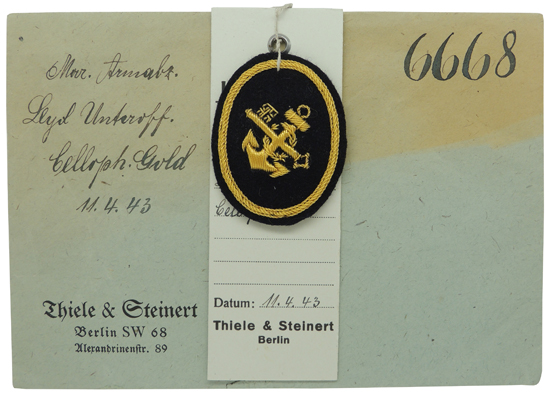 Mar. Armabz.
Lloyd Unteroff.
Celloph. Gold
11.4.43
6668
Thiele & Steinert
Berlin SW 68
Alexandrinenstr. 89
Datum: 11.4.43
Thiele & Steinert
Berlin